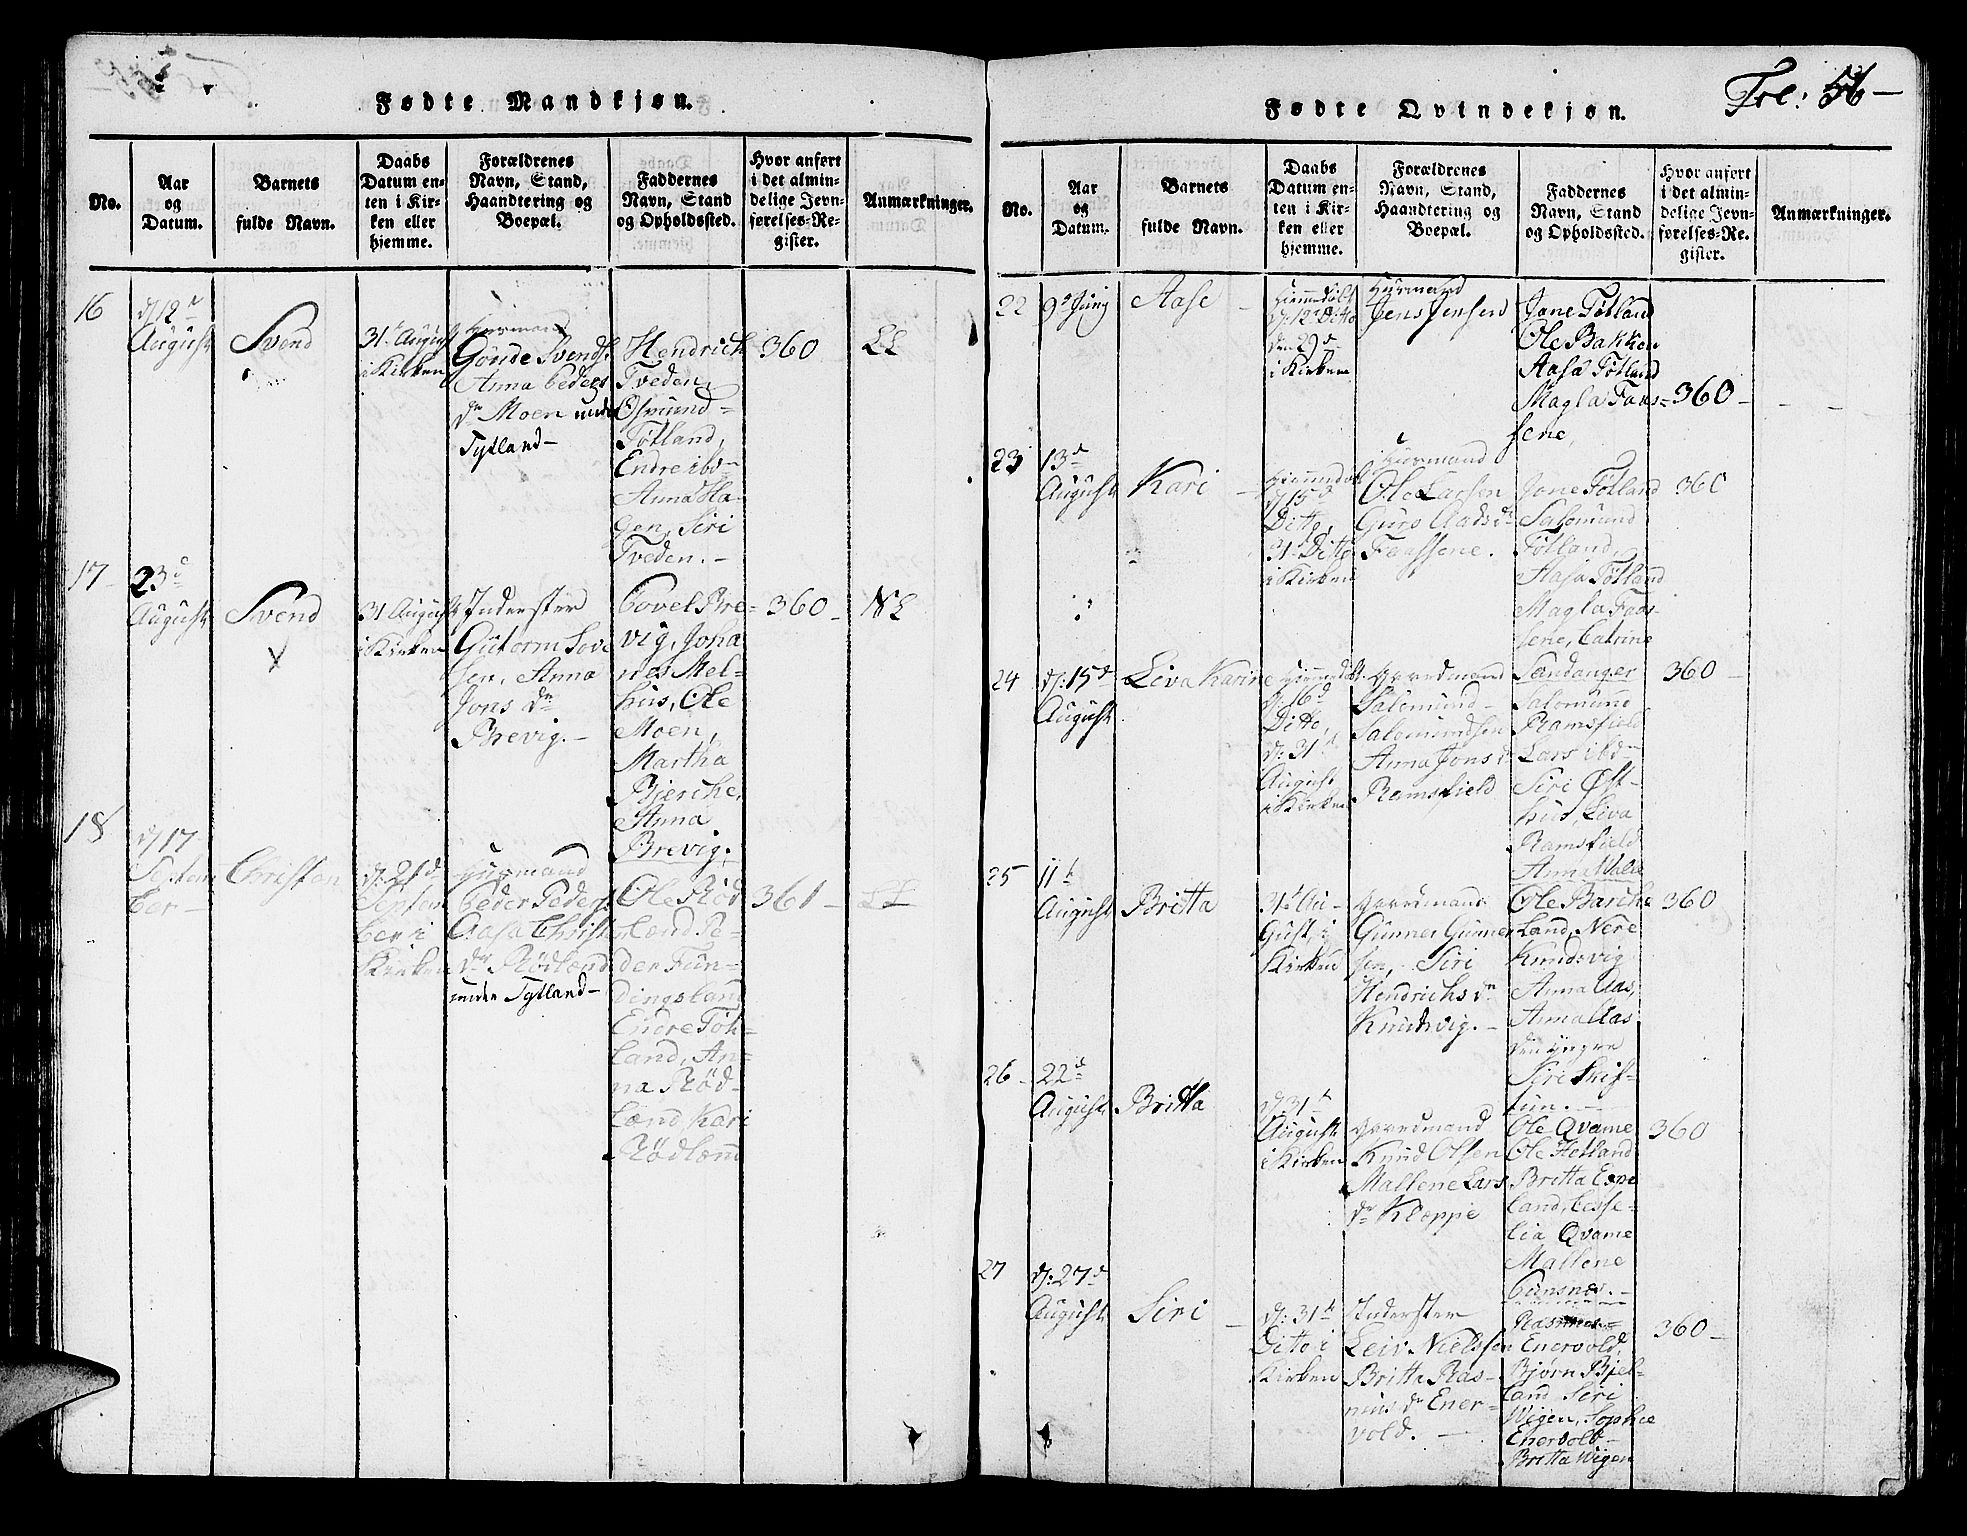 Fødte Mandkjøn.
No.
Aar
og
Datum.
Barnets
fulde Navn.
Daabs
Datum en-
ten i Kir-
ken eller
hjemme.
Forældrenes
Navn, Stand,
Haandtering og
Boepæl.
Faddernes
Navn, Stand
og Opholdssted.
Hvor anført
i det almin-
delige Jevn-
førelses-Re-
gister.
Anmærkninger.
16
d/12
August
Svend
31 August
i Kirken
Huusmand
Gönde Svends
Anna Peders
dr Moen under
Tytland-
Hendrich
Tveden,
Osmund
Tötland,
Endre ibd
Anna Ha-
gen, Siri
Tveden.-
360
17
23d
August
Svend
31 August
i Kirken
Inderster
Gutorm
sen, Anna
Jons dr
Brevig.-
Povel Bre-
vig, Joha
nes Mel-
hus, Ole
Moen,
Martha
Bjerche,
Anna
Brevig.
360
18
d/17
Septem
ber-
Christen
d: 21d
Septem
ber i
Kirken
Huusmand
Peder Peders
Aasa Christ
dr Rödland
under Tytland-
Ole Röd
land Pe-
der Fun-
dingsland
Endre Töt-
land, An-
na Röd-
land Kari
Rödland
361
Fødte Qvindekjøn.
Fol: 56-
No.
Aar
og
Datum.
Barnets
fulde Navn.
Daabs
Datum en-
ten i Kir-
ken eller
hjemme.
Forældrenes
Navn, Stand,
Haandtering og
Boepæl.
Faddernes
Navn, Stand
og Opholdssted.
Hvor anført
i det almin-
delige Jevn-
førelses-Re-
gister.
Anmærkninger.
22
9d Juny
Aase
Hiemmedöbt
d: 12 Ditto
den 29d
i Kirken
Huusmand
Jens Jensen
Jone Tötland
Ole Bakken
Aasa Tötland
Magla Faas-
sene,
360
23
13d
August
Kari
Hiemmedöbt
d/15d
Ditto,
31 Ditto
i Kirken
Huusmand
Ole Larsen
Guro Aads dr
Faassene.
Jone Tötland
Salomund
Tötland,
Aasa Tötland
Magla Faas-
sene, Catrine
Sandanger
360
24
d: 15d
August
Liva Karine
Hiemmedöbt
d: 16d
Ditto,
d: 31
August
i Kirken
Gaardmand
Salomund
Salomundsen
Anna Jons d
Ramsfield
Salomund
Ramsfield
Lars ibd
Siri Øst-
hus, Liva
Ramsfield
Anna
360
25
11
August
Britta
31 Au-
gust, i
Kirken
Gaardmand
Gunner Gunner
sen, Siri
Hendrichs dr
Knudsvig.-
Ole Barche
land, Nere
Knudsvig
Anna Aas,
Anna Aas
den yngre
Siri Skif-
tun.
360
26
22d
August
Britta
d: 31
August
i Kirken
Gaardmand
Knud Olsen
Mallene Lars
dr Kleppe
Ole Qvame
Ole Hetland
Britta Espe
land, Cesse-
lia Qvame
Mallene
360
27
d: 27d
August
Siri
d: 31
Ditto i
Kirken
Inderster
Leiv Nielssen
Britta Ras-
mus dr Ener-
vold.
Rasmus
Enervold,
Bjørn Bjel-
land Siri
Wigen, Sophie
Enervold
Britta Wigen
360